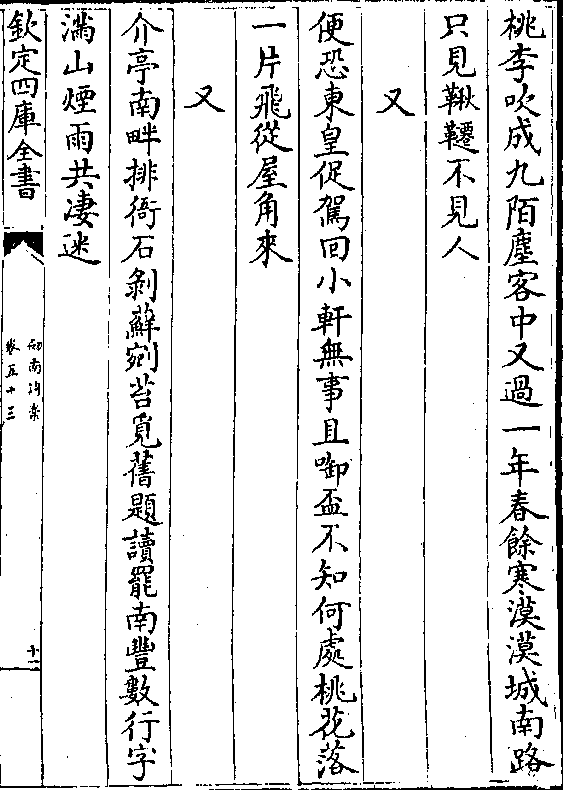 桃李吹成九陌塵客中又過一年春餘寒漠漠城南路
只見鞦韆不見人
又
便恐東皇促駕回小軒無事且啣盃不知何處桃花落
一片飛從屋角來
又
介亭南畔排衙石剝蘚剜苔覓舊題讀罷南豐數行字
滿山煙雨共凄迷
欽定四庫全書
劒南詩稾
卷五十三
十一